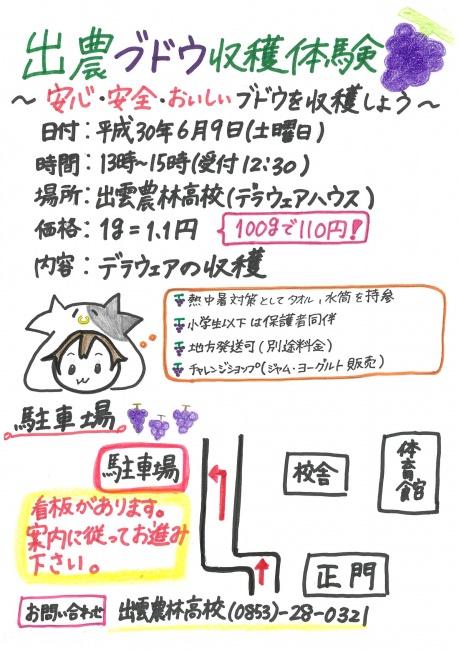 出農ブドウ収穫体験
～安心・安全・おいしいブドウを収穫しよう～
日付：平成30年6月9日(土曜日)
時間：13時～15時(受付12:30)
場所：出雲農林高校(デラウェアハウス)
価格：1g=1.1円 100gで110円!
内容：デラウェアの収穫
熱中暑対策としてタオル,水筒を持参
小学生以下は保護者同伴
地方発送可(別途料金)
チャレンジショップ(ジャム・ヨーグルト販売)
駐車場
駐車場
校舎
体育館
看板があります。
案内に従ってお進み
下さい。
正門
お問い合わせ 出雲農林高校(0853)-28-0321